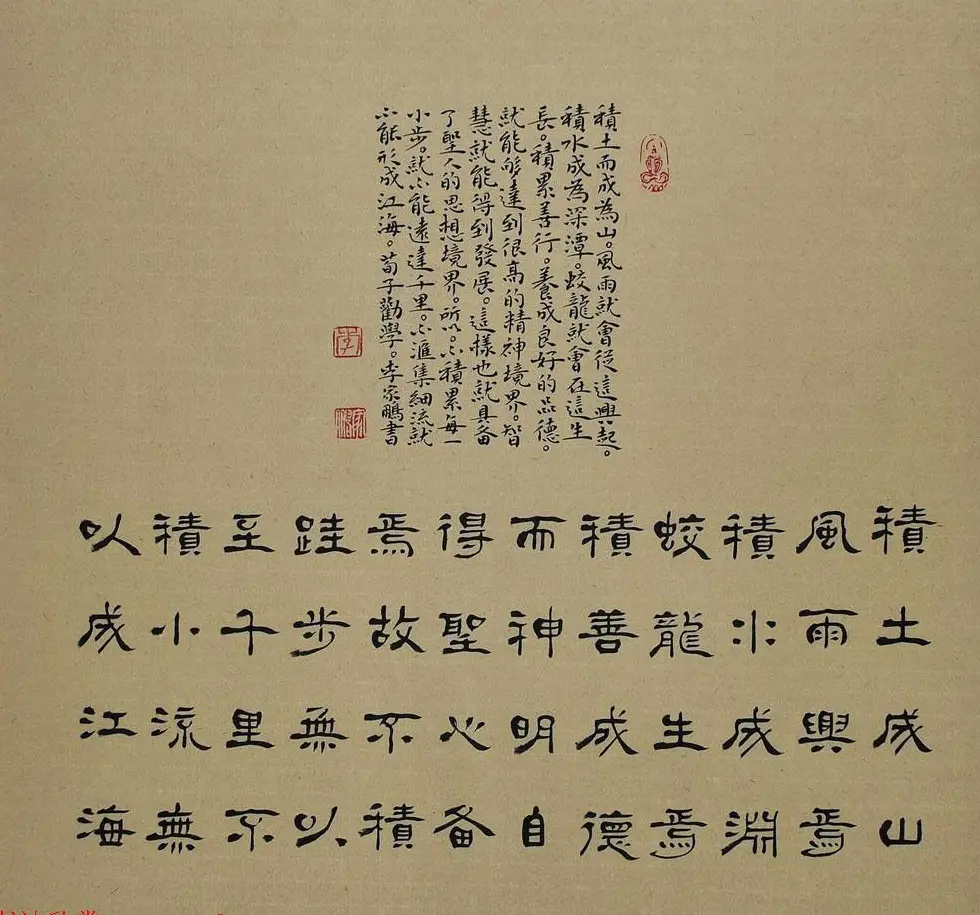 積土而成為山。風雨就會從這興起。
積水成為深潭。蛟龍就會在這生
長。積累善行。養成良好的品德。
就能够達到很高的精神境界。智
慧就能得到發展。這樣也就具备
了聖人的思想境界。所以。不積累每一
小步。就不能遠達千里。不匯集細流就
不能形成江海。荀子勸學。李家鵬書
李
積土成山
風雨興焉
積水成淵
蛟龍生焉
積善成德
而神明自
得聖心备
焉故不積
跬步無以
至千里不
積小流無
以成江海